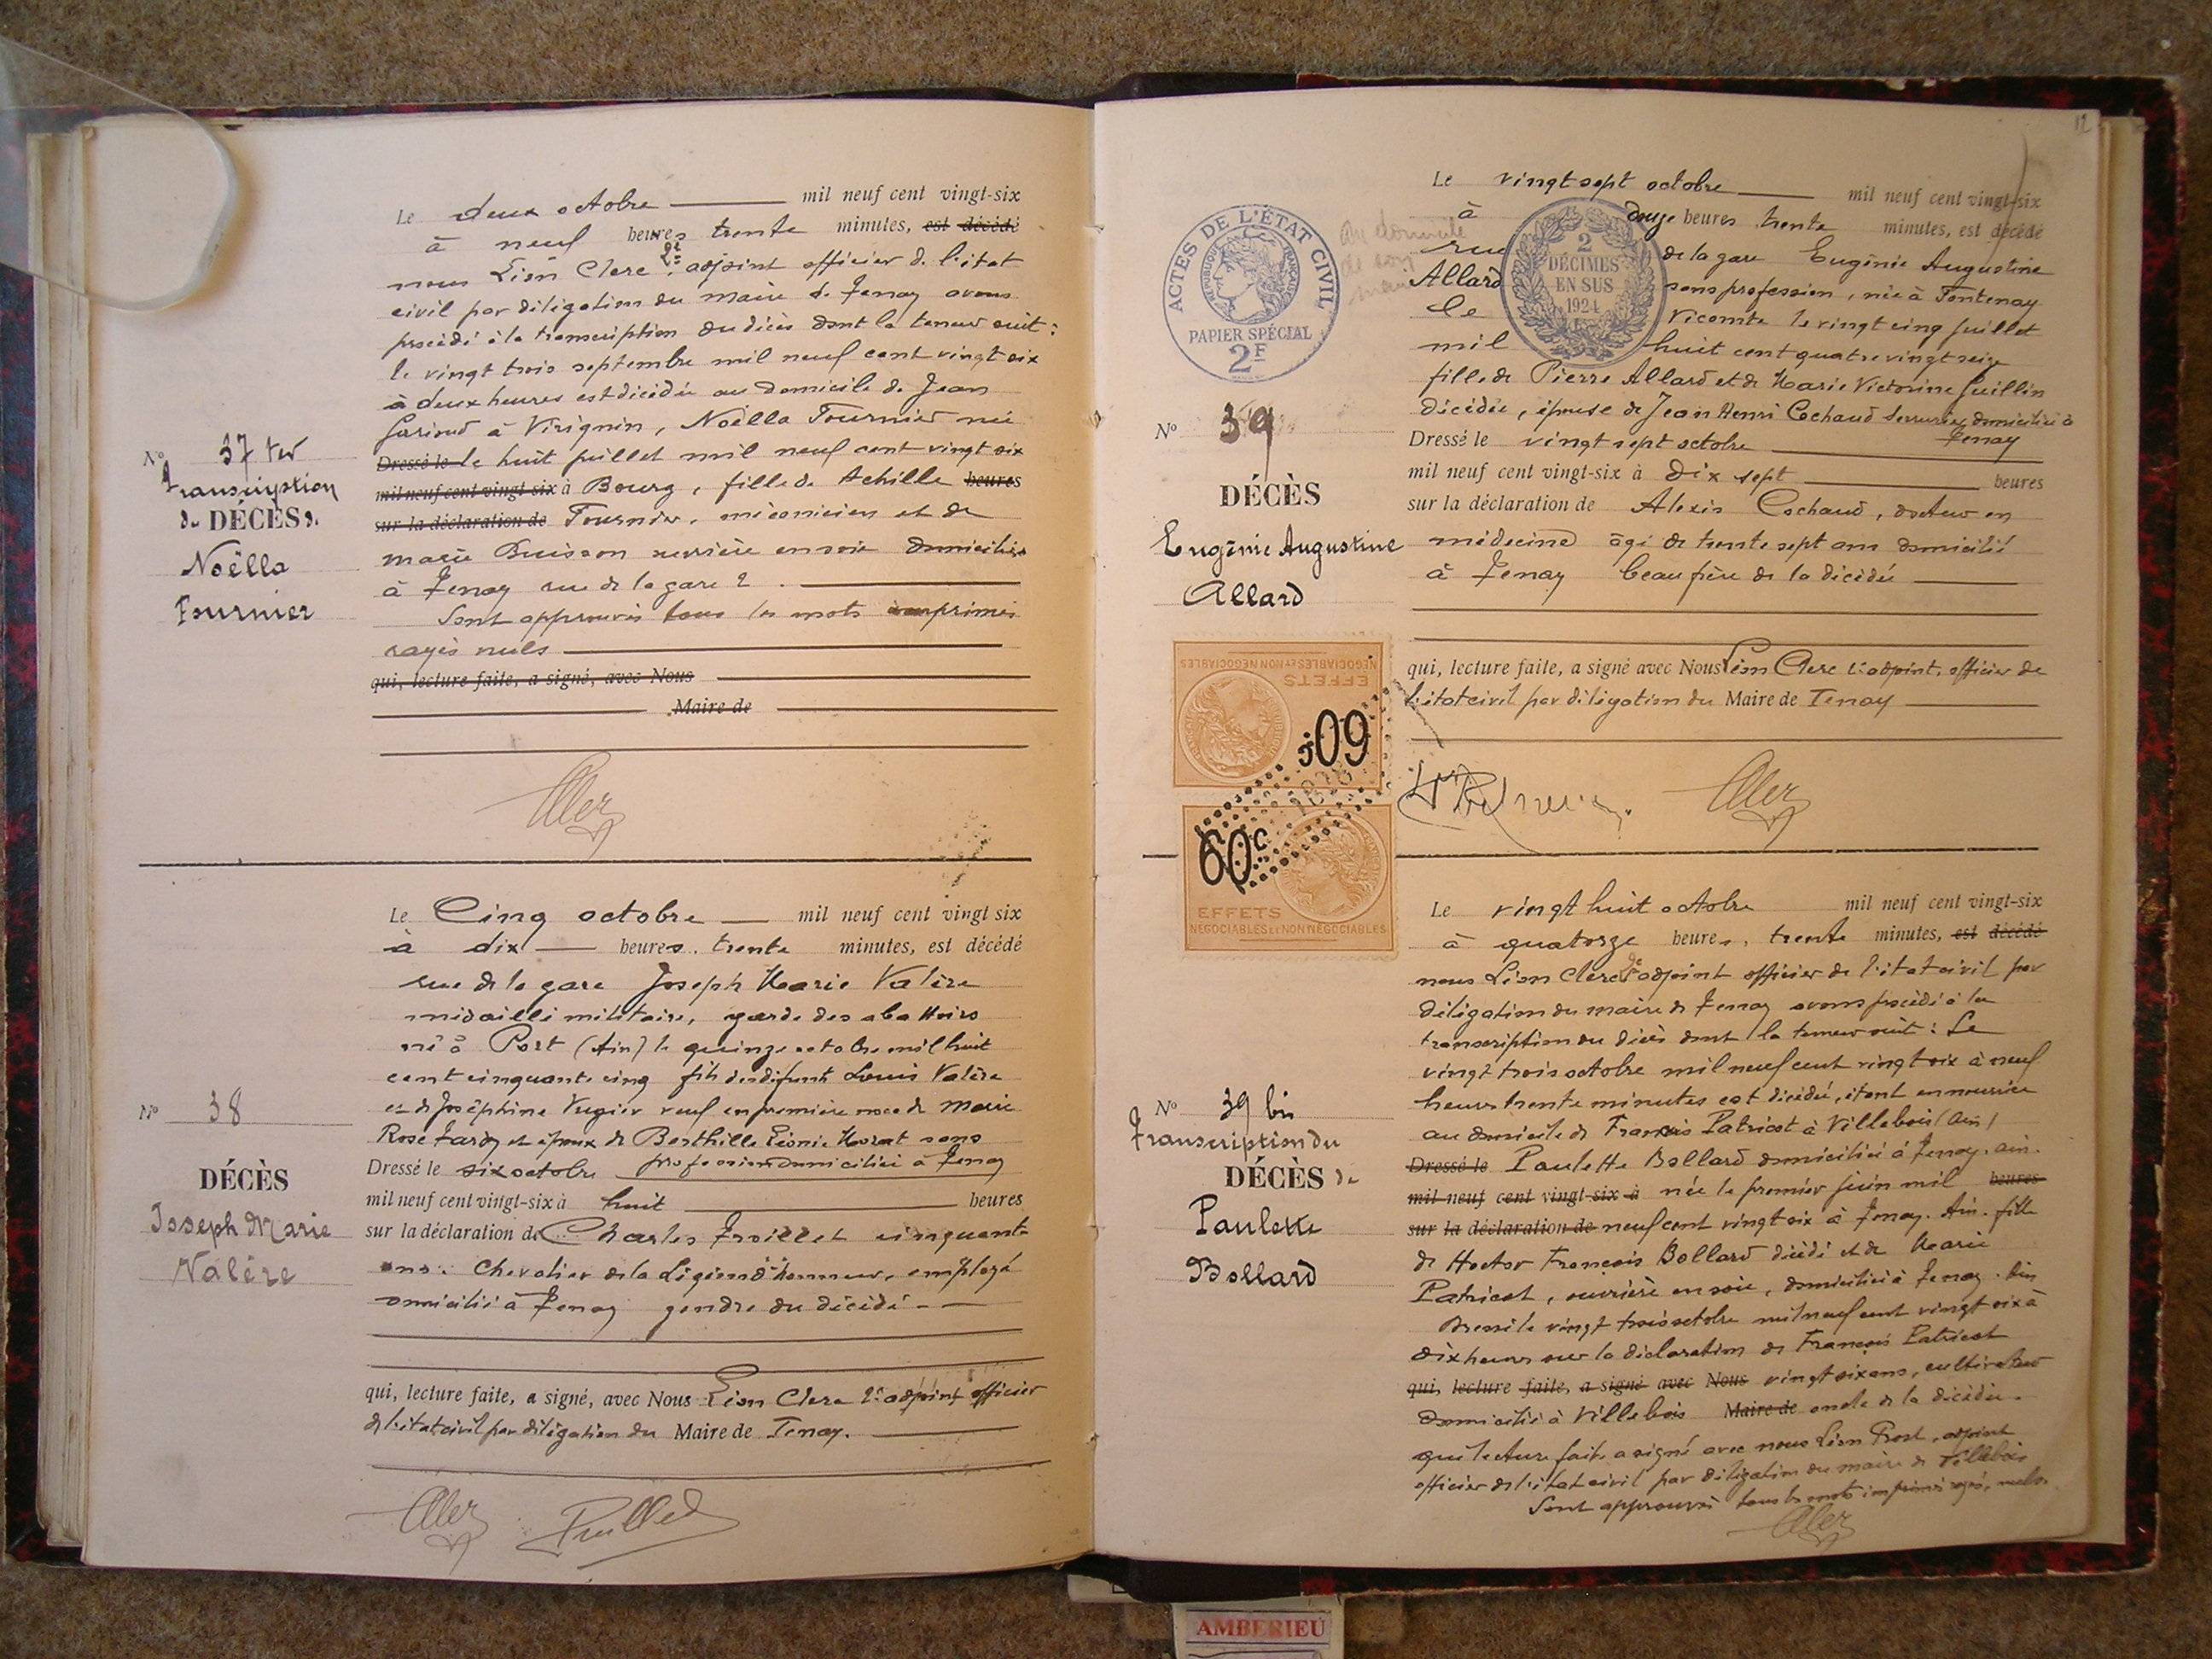 Le deux octobre mil neuf cent vingt-six
à neuf heures trente minutes, est décédé
nous Léon Clerc 2e adjoint officier de l'état
civil par délégation du maire de Tenay avons
procédé à la transcription du décès dont la teneur suit :
le vingt trois septembre mil neuf cent vingt six
à deux heures est décédée au domicile de Jean
à Virignin, Noëlla Fournier née
Dressé le le huit juillet mil neuf cent vingt six
mil neuf cent vingt-six à Bourg, fille de Achille heures
sur la déclaration de Fournier, mécanicien et de
marie Buisson ouvrière en soie domiciliés
à Tenay rue de la gare 2.
Sont approuvés tous les mots imprimés
rayés nuls
qui, lecture faite, a signé, avec Nous
Maire de
Clerc
No 37 ter
Transcription
du DÉCÈS de
Noëlla
Fournier
Le Cinq octobre mil neuf cent vingt six
à dix heures trente minutes, est décédé
rue de la gare Joseph Marie Valère
médaillé militaire, garde des abattoirs
né à Port (Ain) le quinze octobre mil huit
cent cinquante cinq fils des défunts Louis Valère
et de Joséphine Vugier veuf en première noce de Marie
Rose Tardy et époux de Berthille Léonie Morat sans
Dressé le six octobre profession domiciliée à Tenay
mil neuf cent vingt-six à huit heures
sur la déclaration de Charles Truillet cinquante
ans. Chevalier de la Légion d'honneur, employé
domicilié à Tenay gendre du décédé
qui, lecture faite, a signé, avec Nous Léon Clerc 2e adjoint officier
de l'état civil par délégation du Maire de Tenay.
Clerc
No 38
DÉCÈS
Joseph Marie
Valère
12
Le vingt sept octobre mil neuf cent vingt-six
à douze heures trente minutes, est décédé
rue de la gare Eugénie Augustine
Allard sans profession, née à Fontenay
le Vicomte le vingt cinq juillet
mil huit cent quatre vingt seize
fille de Pierre Allard et de Marie Victorine Guillin
décédée, épouse de Jean Henri Cochaud serrurier domicilié à
Dressé le vingt sept octobre Tenay
mil neuf cent vingt-six à dix sept heures
sur la déclaration de Alexis Cochaud, docteur en
médecine âgé de trente sept ans domicilié
à Tenay beau frère de la décédée
qui, lecture faite, a signé avec Nous Léon Clerc 2e adjoint, officier de
l'état civil par délégation du Maire de Tenay
Clerc
au domicile
de son
mari
ACTES DE L'ÉTAT CIVIL
RÉPUBLIQUE FRANÇAISE
PAPIER SPÉCIAL
2F
2
DÉCIMES
EN SUS
1924
No 39
DÉCÈS
Eugénie Augustine
Allard
NÉGOCIABLES ET NON NÉGOCIABLES
EFFETS
60c
60c
EFFETS
NÉGOCIABLES ET NON NÉGOCIABLES
Le vingt huit octobre mil neuf cent vingt-six
à quatorze heures, trente minutes, est décédé
nous Léon Clerc 2e adjoint officier de l'état civil par
délégation du maire de Tenay avons procédé à la
transcription du décès dont la teneur suit : Le
vingt trois octobre mil neuf cent vingt six à neuf
heures trente minutes est décédée, étant en nourrice
au domicile de François Patricot à Villebois (Ain)
Dressé le Paulette Bollard domiciliée à Tenay. ain.
mil neuf cent vingt-six à née le premier juin mil heures
sur la déclaration de neuf cent vingt six à Tenay. Ain. fille
de Hector François Bollard décédé et de Marie
Patricot, ouvrière en soie, domiciliée à Tenay. Ain
Dressé le vingt trois octobre mil neuf cent vingt six à
dix heures sur la déclaration de François Patricot
qui, lecture faite, a signé avec Nous vingt six ans, cultivateur
domicilié à Villebois Maire de oncle de la décédée.
qui lecture faite a signé avec nous Léon Prost, adjoint
officier de l'état civil par délégation du maire de Villebois
Sont approuvés tous les mots imprimés rayés, nuls.
Clerc
No 39 bis
Transcription du
DÉCÈS de
Paulette
Bollard
AMBERIEU